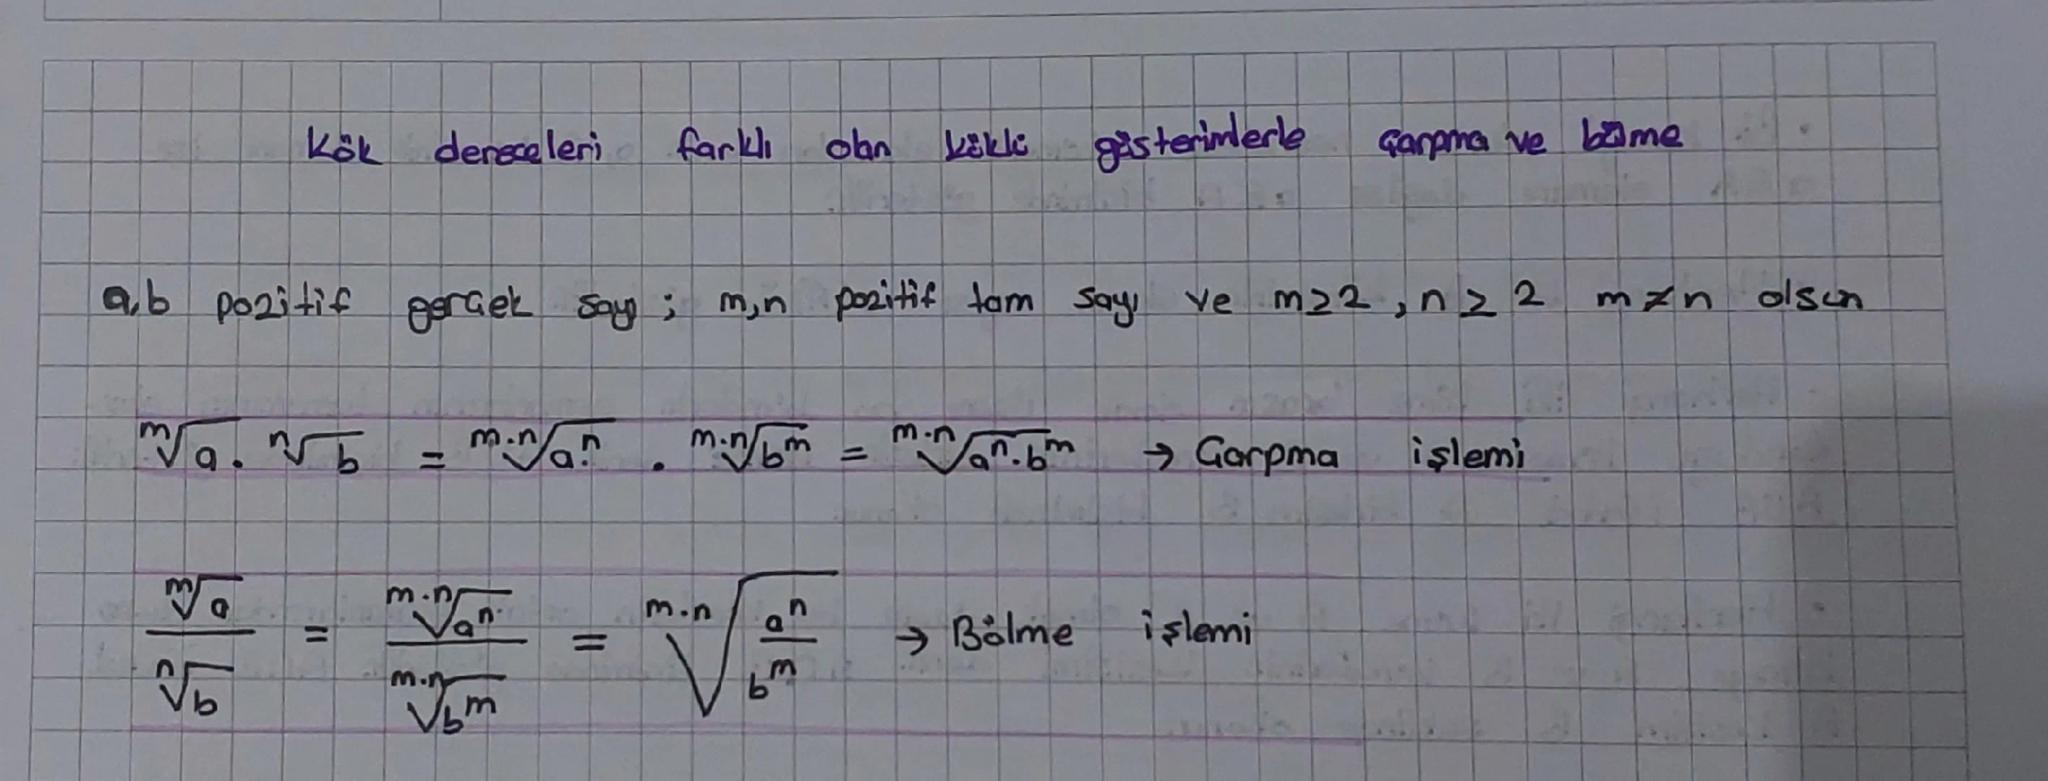 Kök dereceleri farklı olan köklü gösterimlerle çarpma ve bölme
a,b pozitif gerçek sayı; m,n pozitif tam sayı ve m≥2, n≥2 m≠n olsun
ᵐ√a · ⁿ√b = ᵐ·ⁿ√(aⁿ) · ᵐ·ⁿ√(bᵐ) = ᵐ·ⁿ√(aⁿ·bᵐ) → Çarpma işlemi
ᵐ√a / ⁿ√b = ᵐ·ⁿ√(aⁿ) / ᵐ·ⁿ√(bᵐ) = ᵐ·ⁿ√(aⁿ / bᵐ) → Bölme işlemi